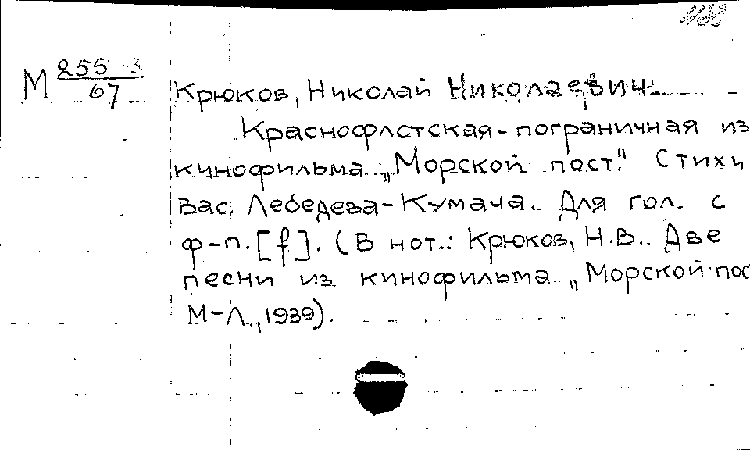 М 255-3
67
Крюков, Николай Николаевич.
Краснофлотская-пограничная из
кинофильма „Морской пост." Стихи
Вас. Лебедева-Кумача. Для гол. с
ф-п. [f]. (В нот.: Крюков, Н.В.. Две
песни из кинофильма „Морской пос
М-Л., 1939).